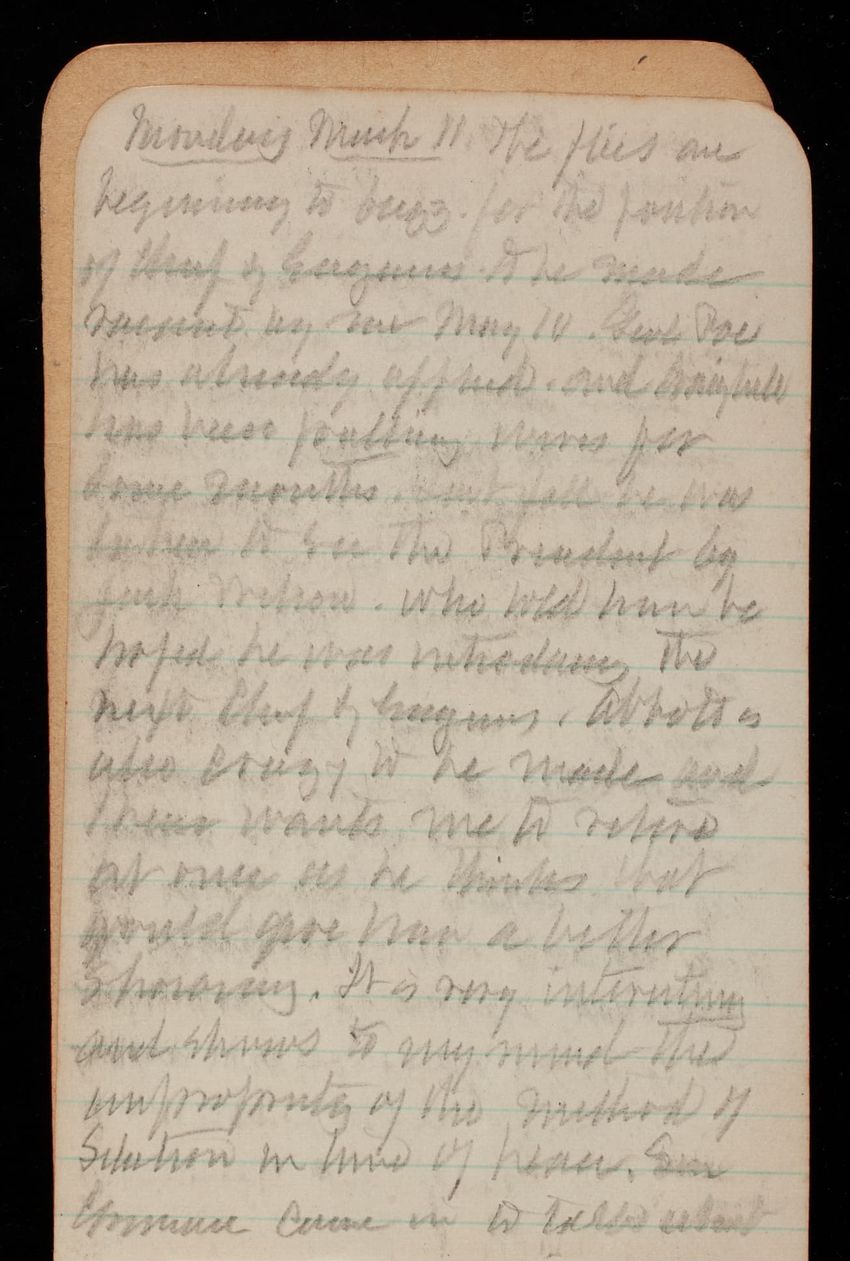 Monday March 11. The flies are
beginning to buzz. for the position
of Chief of Engineers to be made
vacant by me May 10. Genl Poe
has already applied. and Craighill
has been pulling wires for
some months. Last fall he was
taken to see the President by
Wilson. who told him he
hoped he was introducing the
next Chief of Engineers. Abbott is
also crazy to be made and
wants me to retire
at once as he thinks that
would give him a better
showing. It is very interesting
and shows to my mind the
impropriety of the method of
selection in time of peace. Sen
came in to talk about